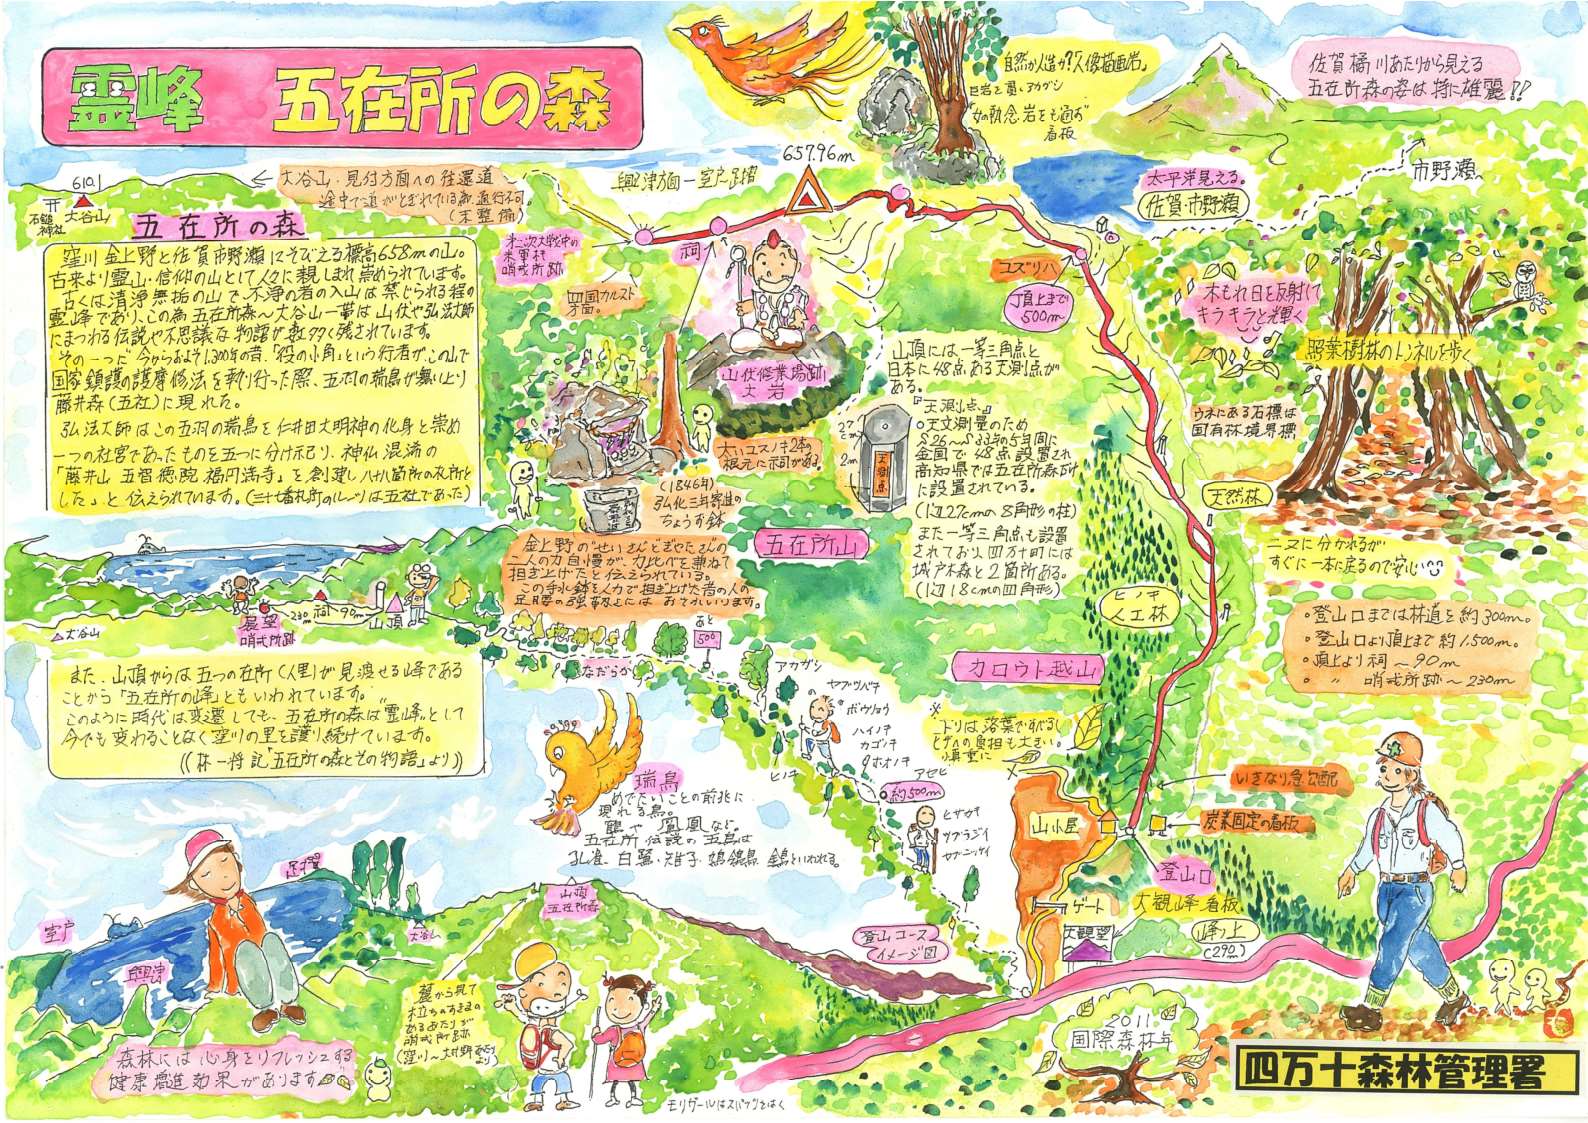 霊峰　五在所の森
自然か人造か?「人像描画岩」
巨岩を裏くアカガシ
"女の執念岩をも通す"
看板
佐賀橘川あたりから見える
五在所森の姿は特に雄麗!!
657.96m
興津方面~室戸足摺
610.1
大谷山
石鎚
神社
大谷山・見付方面への往還道
途中で道がとぎれている為、通行不可。
(未整備)
太平洋見える。
佐賀・市野瀬
市野瀬
五在所の森
窪川金上野と佐賀市野瀬にそびえる標高658mの山。
古来より霊山・信仰の山として人々に親しまれ崇められています。
古くは清浄無垢の山で、不浄の者の入山は禁じられる程の
霊峰であり、この為五在所森~大谷山一帯は山伏や弘法大師
にまつわる伝説や不思議な物語が数多く残されています。
その一つに"今からおよそ1,300年の昔、「役の小角」という行者が、この山で
国家鎮護の護摩修法を執り行った際、五羽の瑞鳥が舞い上り
藤井森(五社)に現れた。
弘法大師はこの五羽の瑞鳥を仁井田大明神の化身と崇め
一つの社宮であったものを五つに分け祀り、神仏混淆の
「藤井山五智徳院福円満寺」を創建し八十八箇所の札所と
した。」と伝えられています。(三十七番札所のルーツは五社であった)
第二次大戦中の
米軍機
哨戒所跡
祠
四国カルスト
方面。
ユズリハ
頂上まで
500m
木もれ日を反射して
キラキラと輝く
照葉樹林のトンネルを歩く
ウネにある石標は
国有林境界標
山伏修業場跡
大岩
太いユスノキ2本の
根元に祠がある。
(1846年)
弘化三年寄進の
ちょうず鉢
山頂には一等三角点と
日本に48点ある天測点が
ある。
『天測点』
○天文測量のため
S26~S33年の5年間に
全国で48点設置され
高知県では五在所森だけ
に設置されている。
(約27cmの8角形の柱)
また一等三角点も設置
されており、四万十町には
城戸木森と2箇所ある。
(約18cmの四角形)
27cm
2m
天測点
五在所山
金上野の"せいさんとぎやたさん"の
二人の力自慢が、力比べを兼ねて
担ぎ上げたと伝えられている。
この手水鉢を人力で担ぎ上げた昔の人の
足腰の強靭さにはおそれいります。
天然林
二又に分かれるが
すぐに一本に戻るので安心
ヒノキ
人工林
・登山口までは林道を約300m。
・登山口より頂上まで約1,500m。
・頂上より祠~90m
・〃 哨戒所跡~230m
大谷山
230
祠
90m
山頂
展望
哨戒所跡
また、山頂からは五つの在所(人里)が見渡せる峰である
ことから「五在所の峰」ともいわれています。
このように時代は変遷しても、五在所の森は"霊峰"として
今でも変わることなく窪川の里を護り続けています。
((林一将記「五在所の森とその物語」より))
あと
500
なだらか
カロウト越山
アカガシ
ヤブツバキ
ボウジョウ
ハイノキ
カゴノキ
ホオノキ
ヒノキ
アセビ
約500m
ヒサカキ
ツブラジイ
ヤブニッケイ
※下りは落葉ですべるし
ヒザへの負担も大きい。
慎重に
瑞鳥
めでたいことの前兆に
現れる鳥。
鶴や鳳凰など。
五在所伝説の五鳥は
孔雀、白鷺、雉子、鸚鵡鳥、鶏といわれる。
いきなり急勾配
炭素固定の看板
山小屋
登山口
大観峰看板
ゲート
大観望
峰ノ上
(290m)
登山コース
イメージ図
足摺
室戸
興津
大谷山
山頂
五在所森
麓から見て
木立ちのすきまの
あるあたりが
哨戒所跡
(窪川~大村野あたりより)
森林には心身をリフレッシュする
健康増進効果があります
モリガールはスパッツをはく
2011
国際森林年
四万十森林管理署